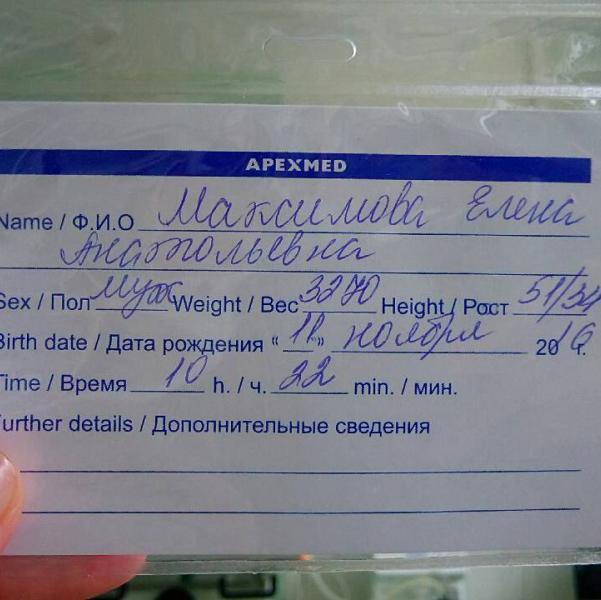 APEXMED
Name / Ф.И.О Максимова Елена
Анатольевна
Sex / Пол муж Weight / Вес 3270 Height / Рост 51/34
Birth date / Дата рождения “ 11 ” ноября 2016 г.
Time / Время 10 h. / ч. 22 min. / мин.
Further details / Дополнительные сведения